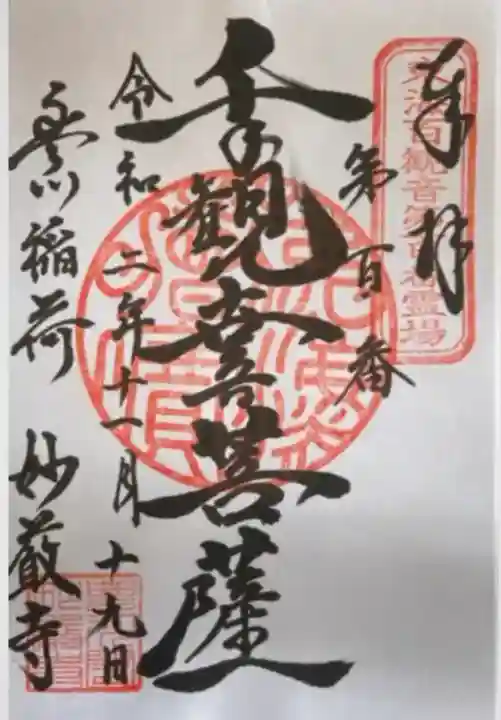 奉拝
東海百観音第百番霊場
第百番
千手観音菩薩
令和二年十一月十九日
豊川稲荷 妙厳寺